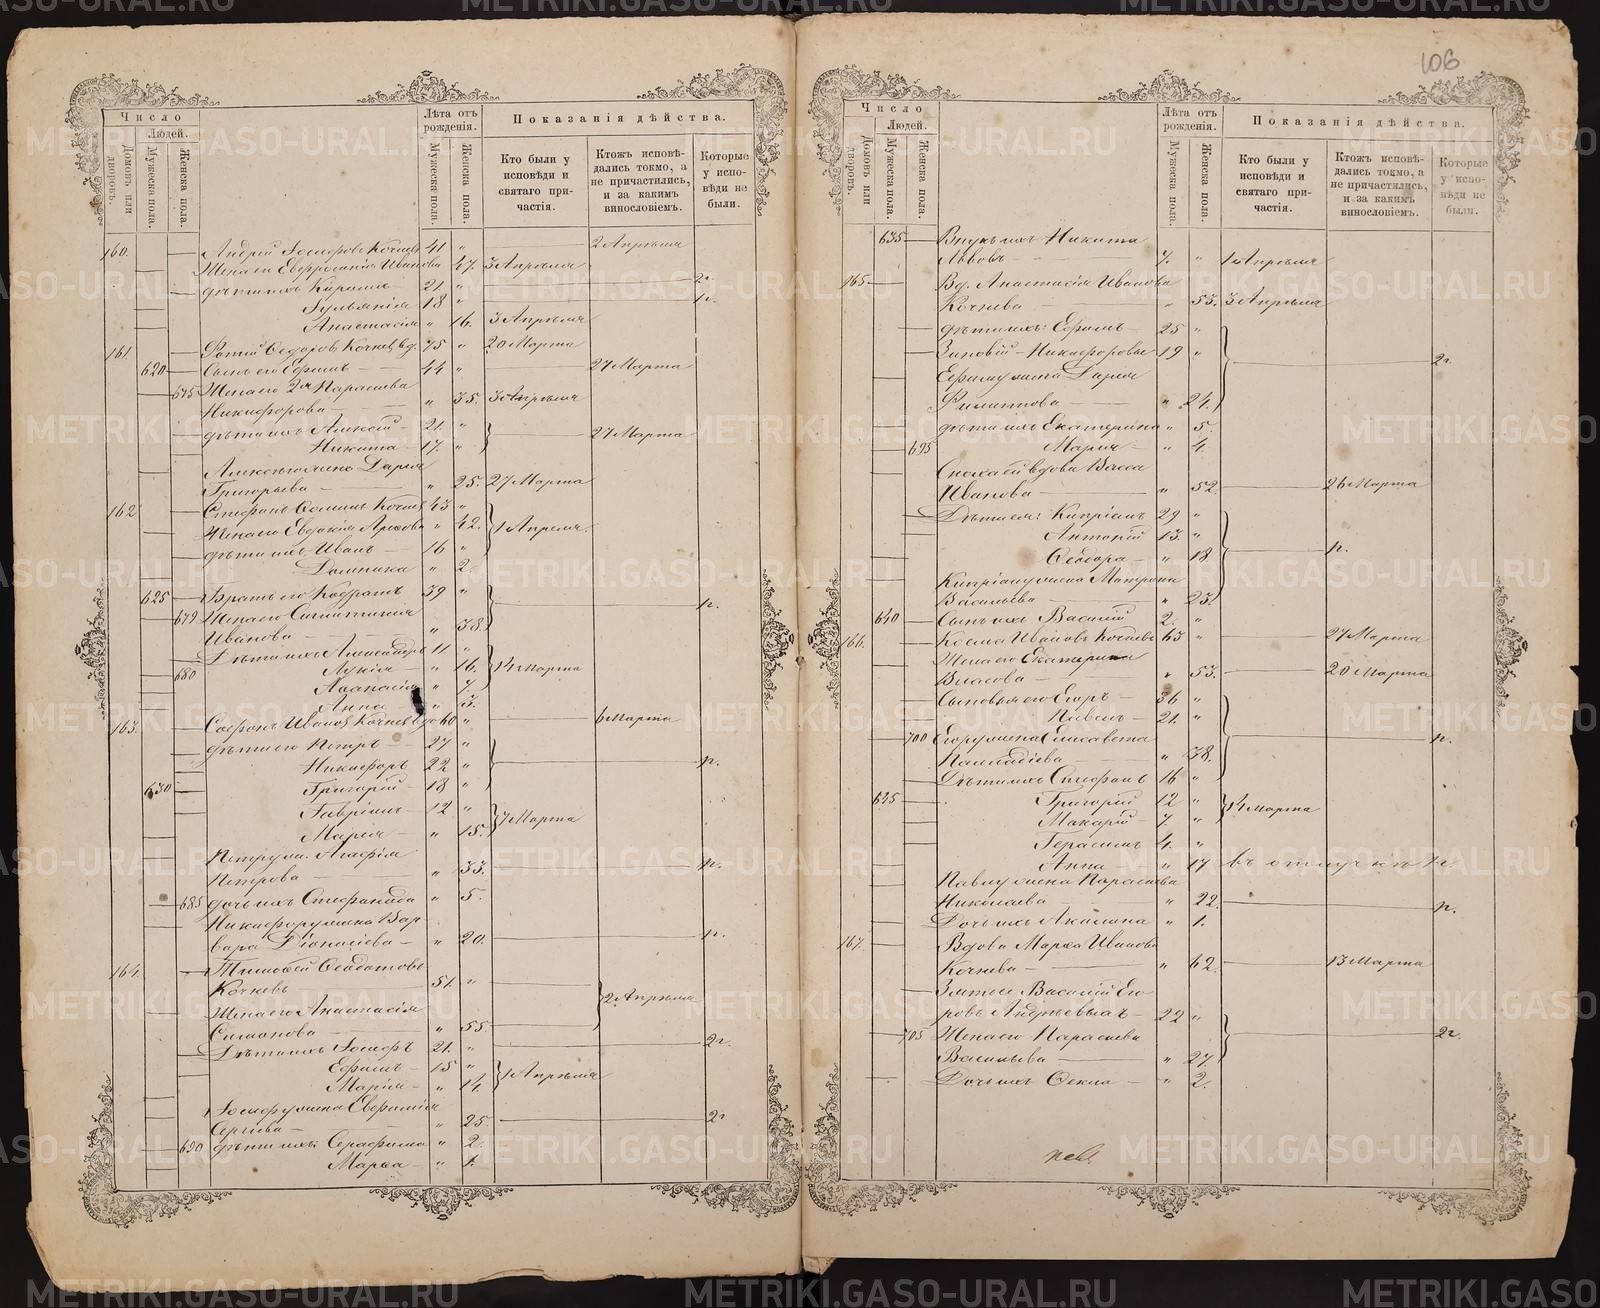 106
Число
Людей.
Домовъ или дворовъ.
Мужеска пола.
Женска пола.
Лѣта отъ рожденія.
Мужеска пола.
Женска пола.
Показанія дѣйства.
Кто были у исповѣди и святаго причастія.
Ктожъ исповѣдались токмо, а не причастились, и за какимъ винословіемъ.
Которые у исповѣди не были.
160. Андрей Іосифовъ Кочневъ 41 " 2 Апрѣля
Жена его Евфросинія Иванова 47. 3 Апрѣля
дѣти ихъ Кирилъ 21 "
Іульянія 18 "
Анастасія " 16. 3 Апрѣля
161. Ѳедоровъ Кочневъ вд. 75 " 20 Марта
620 Сынъ его Ефимъ 44 " 27 Марта
675 Жена его 2я Парасkeва
Никифорова " 35. 3 Апрѣля
дѣти ихъ Алексѣй 21. "
Никита 17. " 27 Марта
Алексѣя жена Дарья
Григорьева " 25. 27 Марта
162 Стефанъ Кочневъ 43 "
Жена его Евдокія " 42. 1 Апрѣля
дѣти ихъ Иванъ 16 "
Домника " 2.
625 Братъ его Кодратъ 39 "
679 Жена его
Иванова " 38.
Дѣти ихъ Александръ 11 "
680 Лукія " 16. 14 Марта
Аѳанасія " 7.
Анна " 3.
163. Софронъ Ивановъ Кочневъ 60 " 6 Марта
дѣти его Петръ 27 "
Никифоръ 22 " н.
630 Григорій 18 "
Гавріилъ 12 "
Марья " 15. 7 Марта
Петру ж. Агафія
Петрова " 33. н.
685 дочь ихъ Стефанида " 5.
Никифору жена Вар-
вара Діонисіева " 20. н.
164. Тимофей
Кочневъ 51. "
Жена его Анастасія 2 Апрѣля
Симонова " 55.
Дѣти ихъ Іосифъ 21. "
Ефимъ 15 " 1 Апрѣля
Марія " 14.
Іосифу жена Евфимія
Сергѣева " 25.
690 дѣти ихъ: Серафима " 2.
Марѳа " 1.
Число
Людей.
Домовъ или дворовъ.
Мужеска пола.
Женска пола.
Лѣта отъ рожденія.
Мужеска пола.
Женска пола.
Показанія дѣйства.
Кто были у исповѣди и святаго причастія.
Ктожъ исповѣдались токмо, а не причастились, и за какимъ винословіемъ.
Которые у исповѣди не были.
635 Внукъ ихъ Никита
Львовъ 7. " 1 Апрѣля
165 Вд. Анастасія Иванова
Кочнева " 53. 3 Апрѣля
дѣти ихъ: Ефимъ 25 "
Зиновій Никифоровы 19 "
Ефиму жена Дарья
Филиппова " 24.
дѣти ихъ Екатерина " 5.
695 Марья " 4.
Сноха ей вдова Васса
Иванова " 52. 26 Марта
Дѣти ея: Кипріанъ 29 "
Антоній 13. "
Ѳеодора " 18. н.
Кипріану жена Матрона
Васильева " 23.
640 Сынъ ихъ Василій 2. "
166. Косма Ивановъ Кочневъ 63 " 27 Марта
Жена его Екатерина
Власова " 53. 20 Марта
Сыновья его Егоръ 36 "
Павелъ 21. "
700 Егору жена Елисавета н.
Палладіева " 38.
Дѣти ихъ Стефанъ 16 "
645 Григорій 12 "
Макарій 7. " 14 Марта
Герасимъ 4. "
Анна " 17 въ отлучкѣ н.
Павлу жена Парасkeва
Николаева " 22. н.
Дочь ихъ Акилина " 1.
167. Вдова Марѳа Иванова
Кочнева " 62. 13 Марта
Зять ее Василій Его-
ровъ Андреевыхъ 22 "
705 Жена его Парасkeва
Васильева " 27.
Дочь ихъ Ѳекла " 2.
METRIKI.GASO-URAL.RU